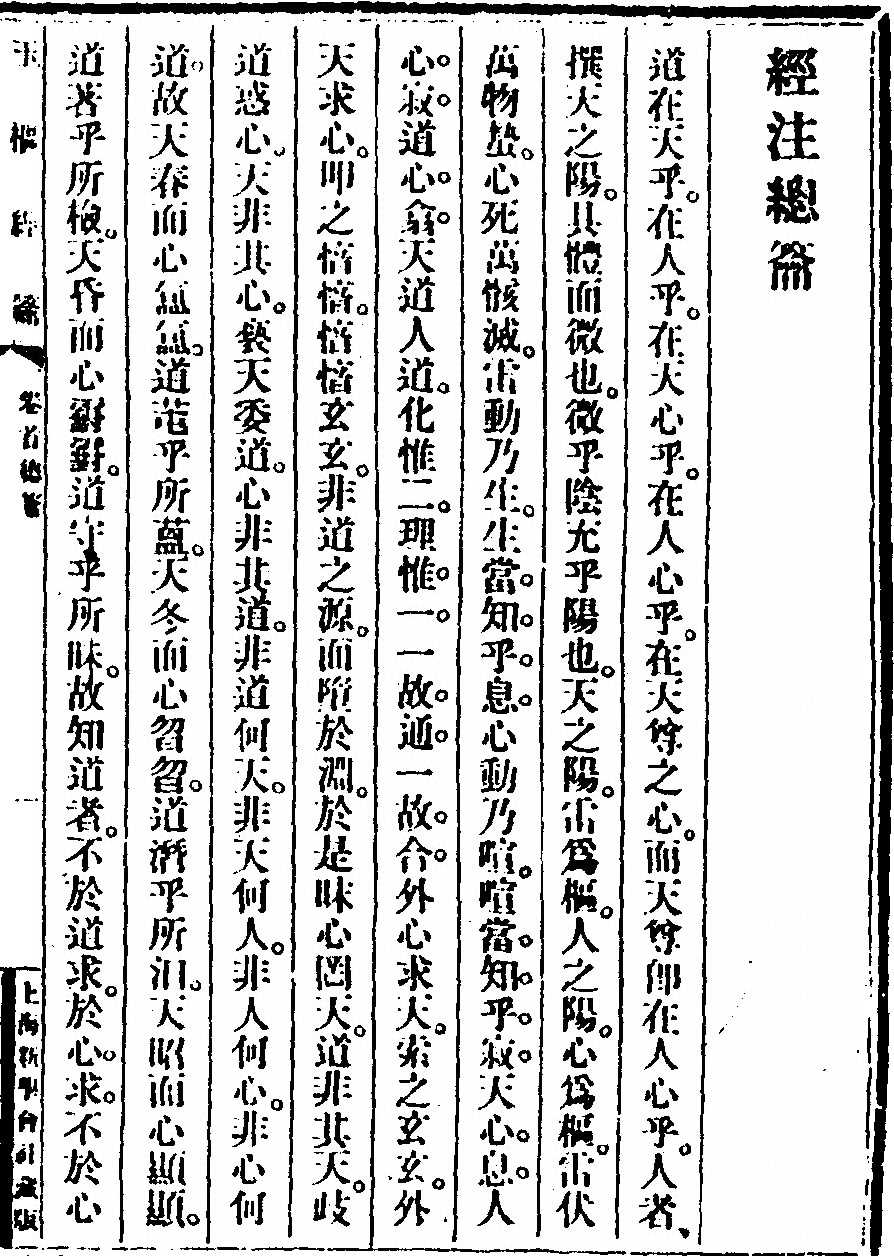 經注總篇
道在天乎。在人乎。在天心乎。在人心乎。在天尊之心。而天尊卽在人心乎。人者、
撰天之陽。具體而微也。微乎陰充乎陽也。天之陽。雷爲樞。人之陽。心爲樞。雷伏
萬物蟄。心死萬骸滅。雷動乃生。生當知乎息。心動乃喧。喧當知乎寂。天心息。人
心寂。道心翕。天道人道。化惟二。理惟一。一故通。一故合。外心求天。索之玄玄。外
天求心。叩之愔愔。愔愔玄玄。非道之源。而墮於淵。於是昧心罔天。道非其天。歧
道惑心。天非其心。褻天委道。心非其道。非道何天。非天何人。非人何心。非心何
道。故天春而心氤氳。道乎所。天冬而心曶曶。道潛乎所汩。天昭而心顯顯。
道著乎所。天昏而心。道守乎所昧。故知道者。不於道求。於心求。不於心
玉樞經籥
卷首總篇
一
上海新學會社藏版